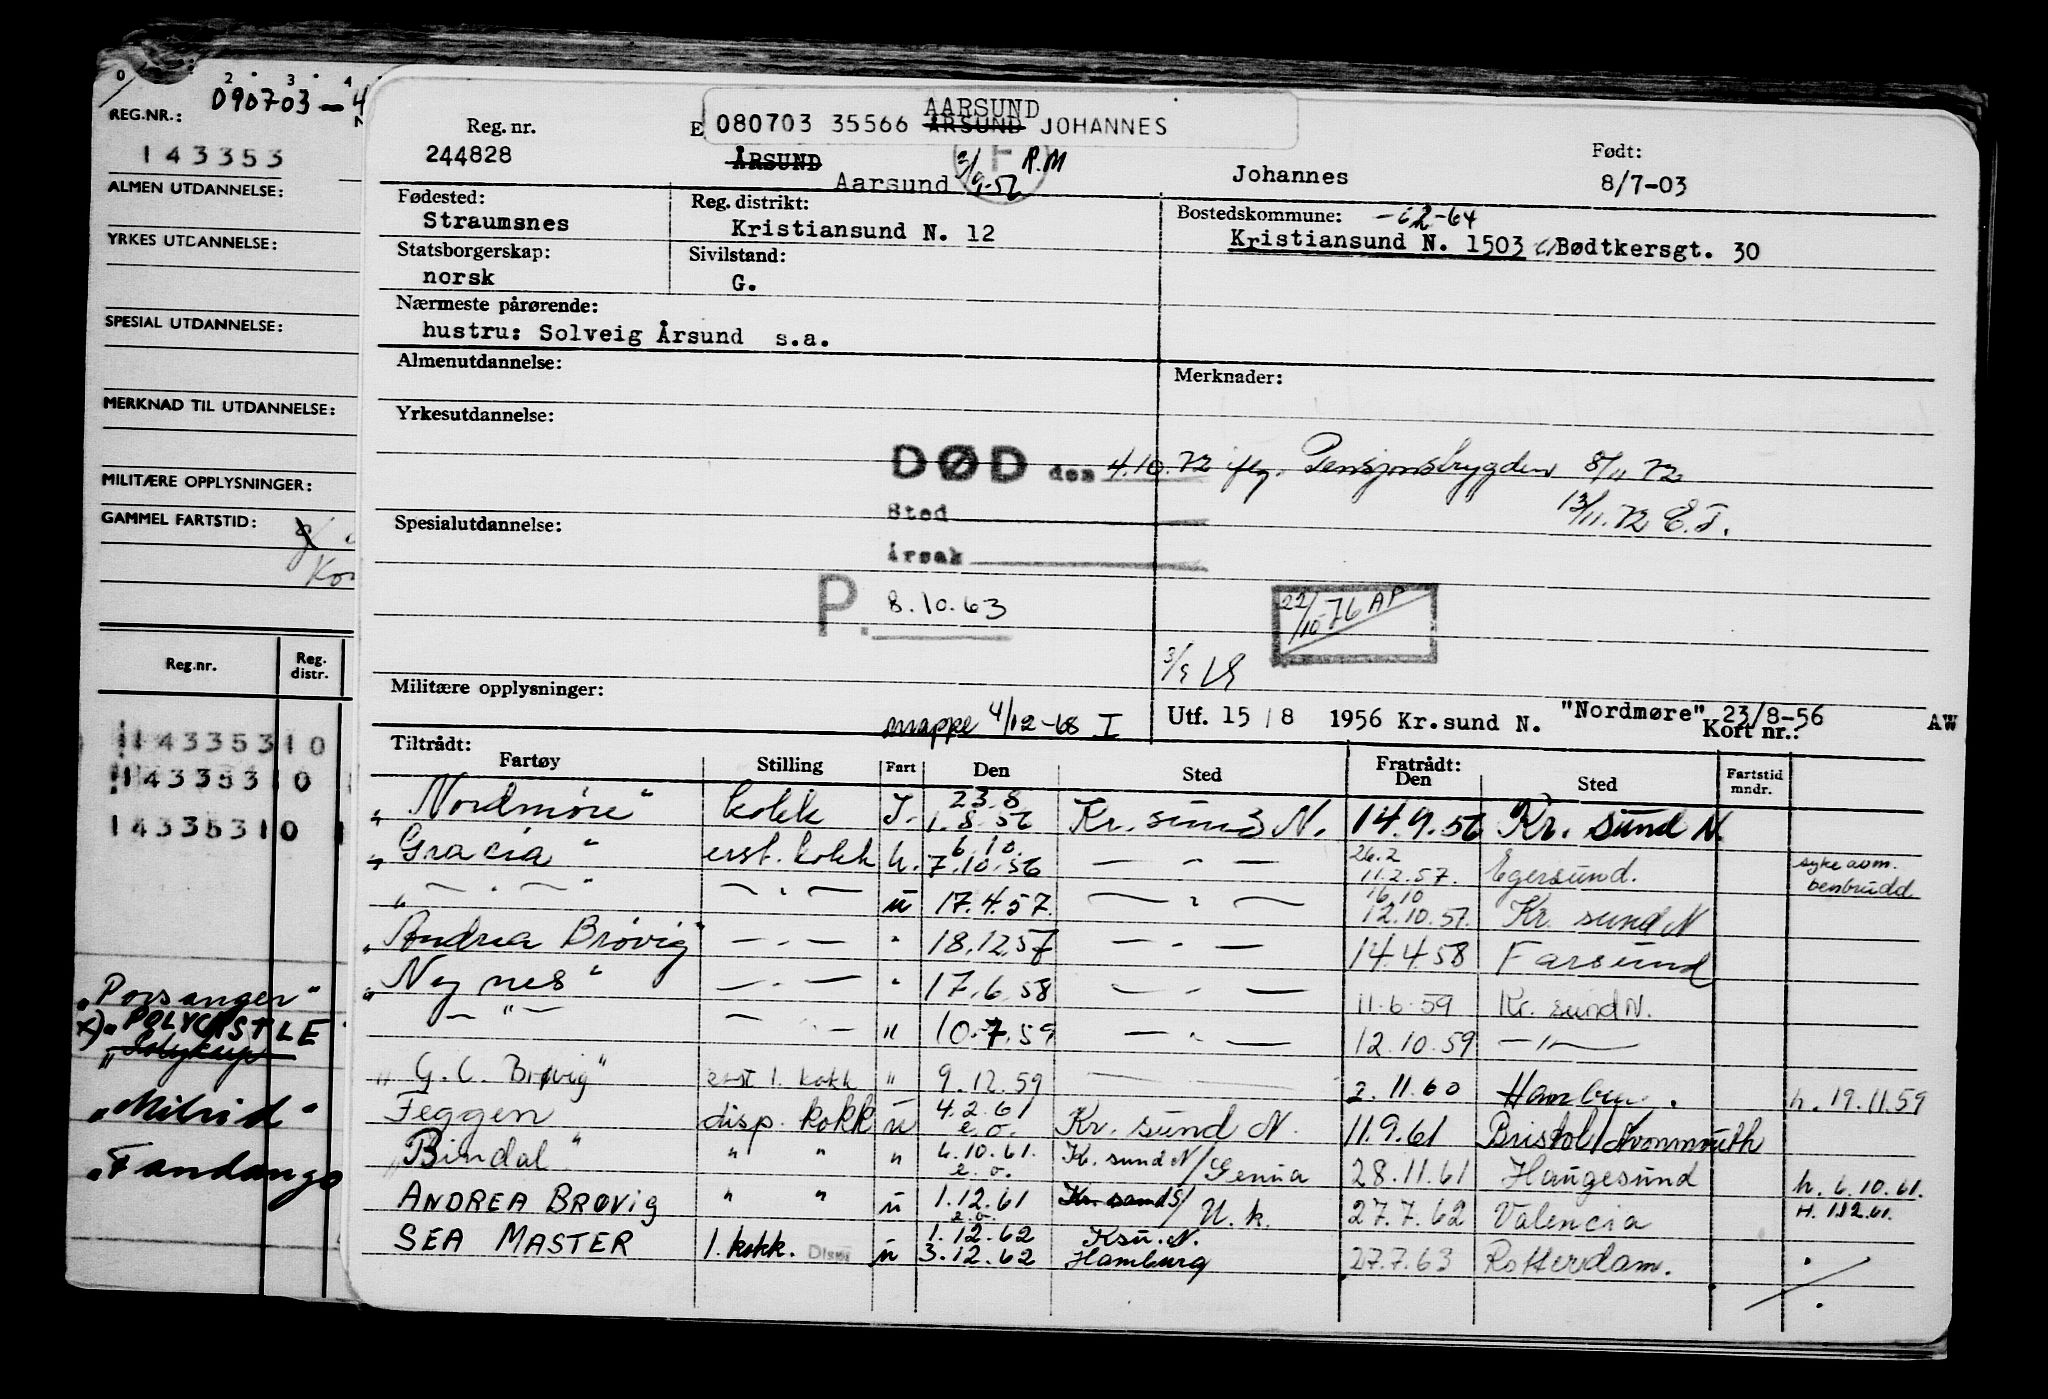 0 2 3 4
090703-4
REG.NR.:
143353
ALMEN UTDANNELSE:
YRKES UTDANNELSE:
SPESIAL UTDANNELSE:
MERKNAD TIL UTDANNELSE:
MILITÆRE OPPLYSNINGER:
GAMMEL FARTSTID:
Reg.nr. Reg. distr.
143353 10
143353 10
143353 10
"Porsanger"
x) "POLYCASTLE
"Milrid"
"Fandango
AARSUND
Reg. nr. E 080703 35566 ÅRSUND JOHANNES
244828 ÅRSUND F R.M Født:
Aarsund 9-56 Johannes 8/7-03
Fødested: Reg. distrikt: Bostedskommune: -12-64
Straumsnes Kristiansund N. 12 Kristiansund N. 1503 Bødtkersgt. 30
Statsborgerskap: Sivilstand:
norsk G.
Nærmeste pårørende:
hustru: Solveig Årsund s.a.
Almenutdannelse: Merknader:
Yrkesutdannelse:
DØD den 4.10.72 ifлg. Pensjonstrygden 8/11 72
13/11.72 E.T.
Sted
Spesialutdannelse:
Årsak
P. 8.10.63
22/10-76 AP
Militære opplysninger:
mappe 4/12-68 I Utf. 15/8 1956 Kr.sund N. "Nordmøre" 23/8-56 Kort nr.: AW
Tiltrådt: Fratrådt:
Fartøy Stilling Fart Den Sted Den Sted Fartstid mndr.
"Nordmøre" kokk I. 23.8 1.8.56 Kr. sund N. 14.9.56 Kr. sund N.
"Gracia" erst. kokk u. 6.10. 7.10.56 — " — 26.2 11.2.57. Egersund. syke avm. benbrudd
" — " — " — " — u 17.4.57. — " — 16.10 12.10.57. Kr. sund N
"Andrea Brøvig" — " — " 18.12.57 — " — 14.4.58 Farsund
"Nynes" — " — " 17.6.58 — " — 11.6.59 Kr. sund N.
— " — — " — " 10.7.59 — " — 12.10.59 — " —
"G.C. Brøvig" erst 1. kokk " 9.12.59 — 2.11.60 Hamburg. h. 19.11.59
Feggen disp. kokk u 4.2.61 e.o. Kr. sund N. 11.9.61 Bristol/Avonmouth
"Bindal" " " " 6.10.61. e.o. Kr. sund N/Genua 28.11.61 Haugesund h. 6.10.61.
ANDREA BRØVIG " " u 1.12.61 e.o. Kr. sand S/U.k. 27.7.62 Valencia H. 1.12.61.
SEA MASTER 1. kokk. Disp. u 1.12.62 3.12.62 Ksu. N. Hamburg 27.7.63 Rotterdam.